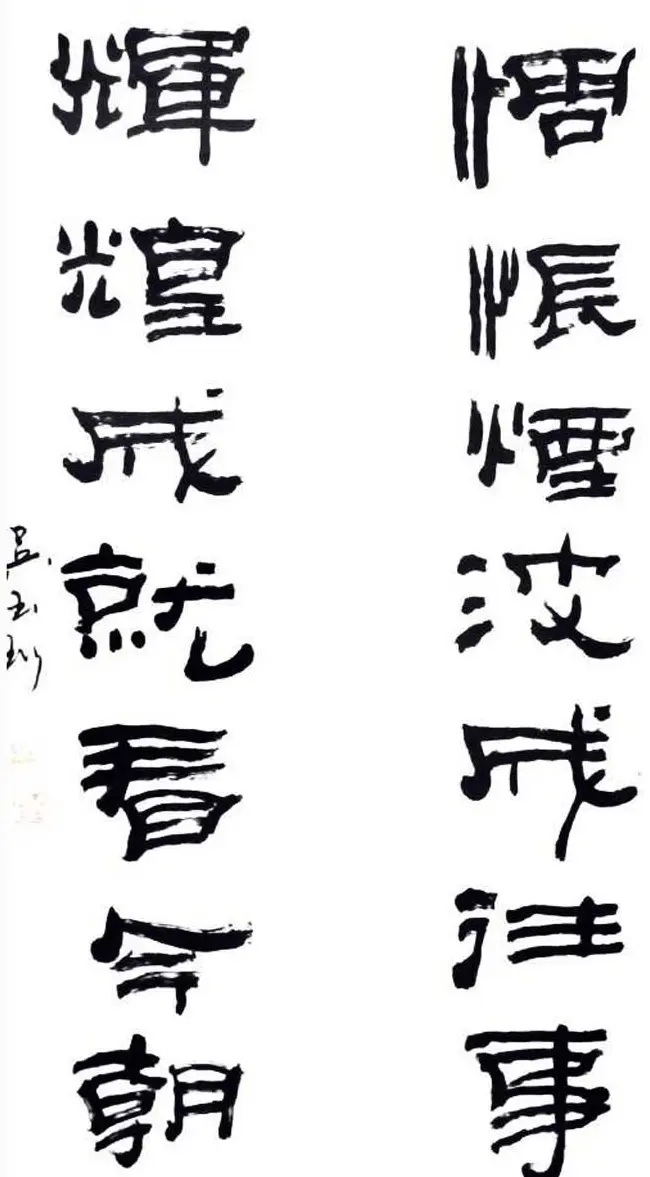 惆悵煙波成往事
輝煌成就看今朝
吳玉珩